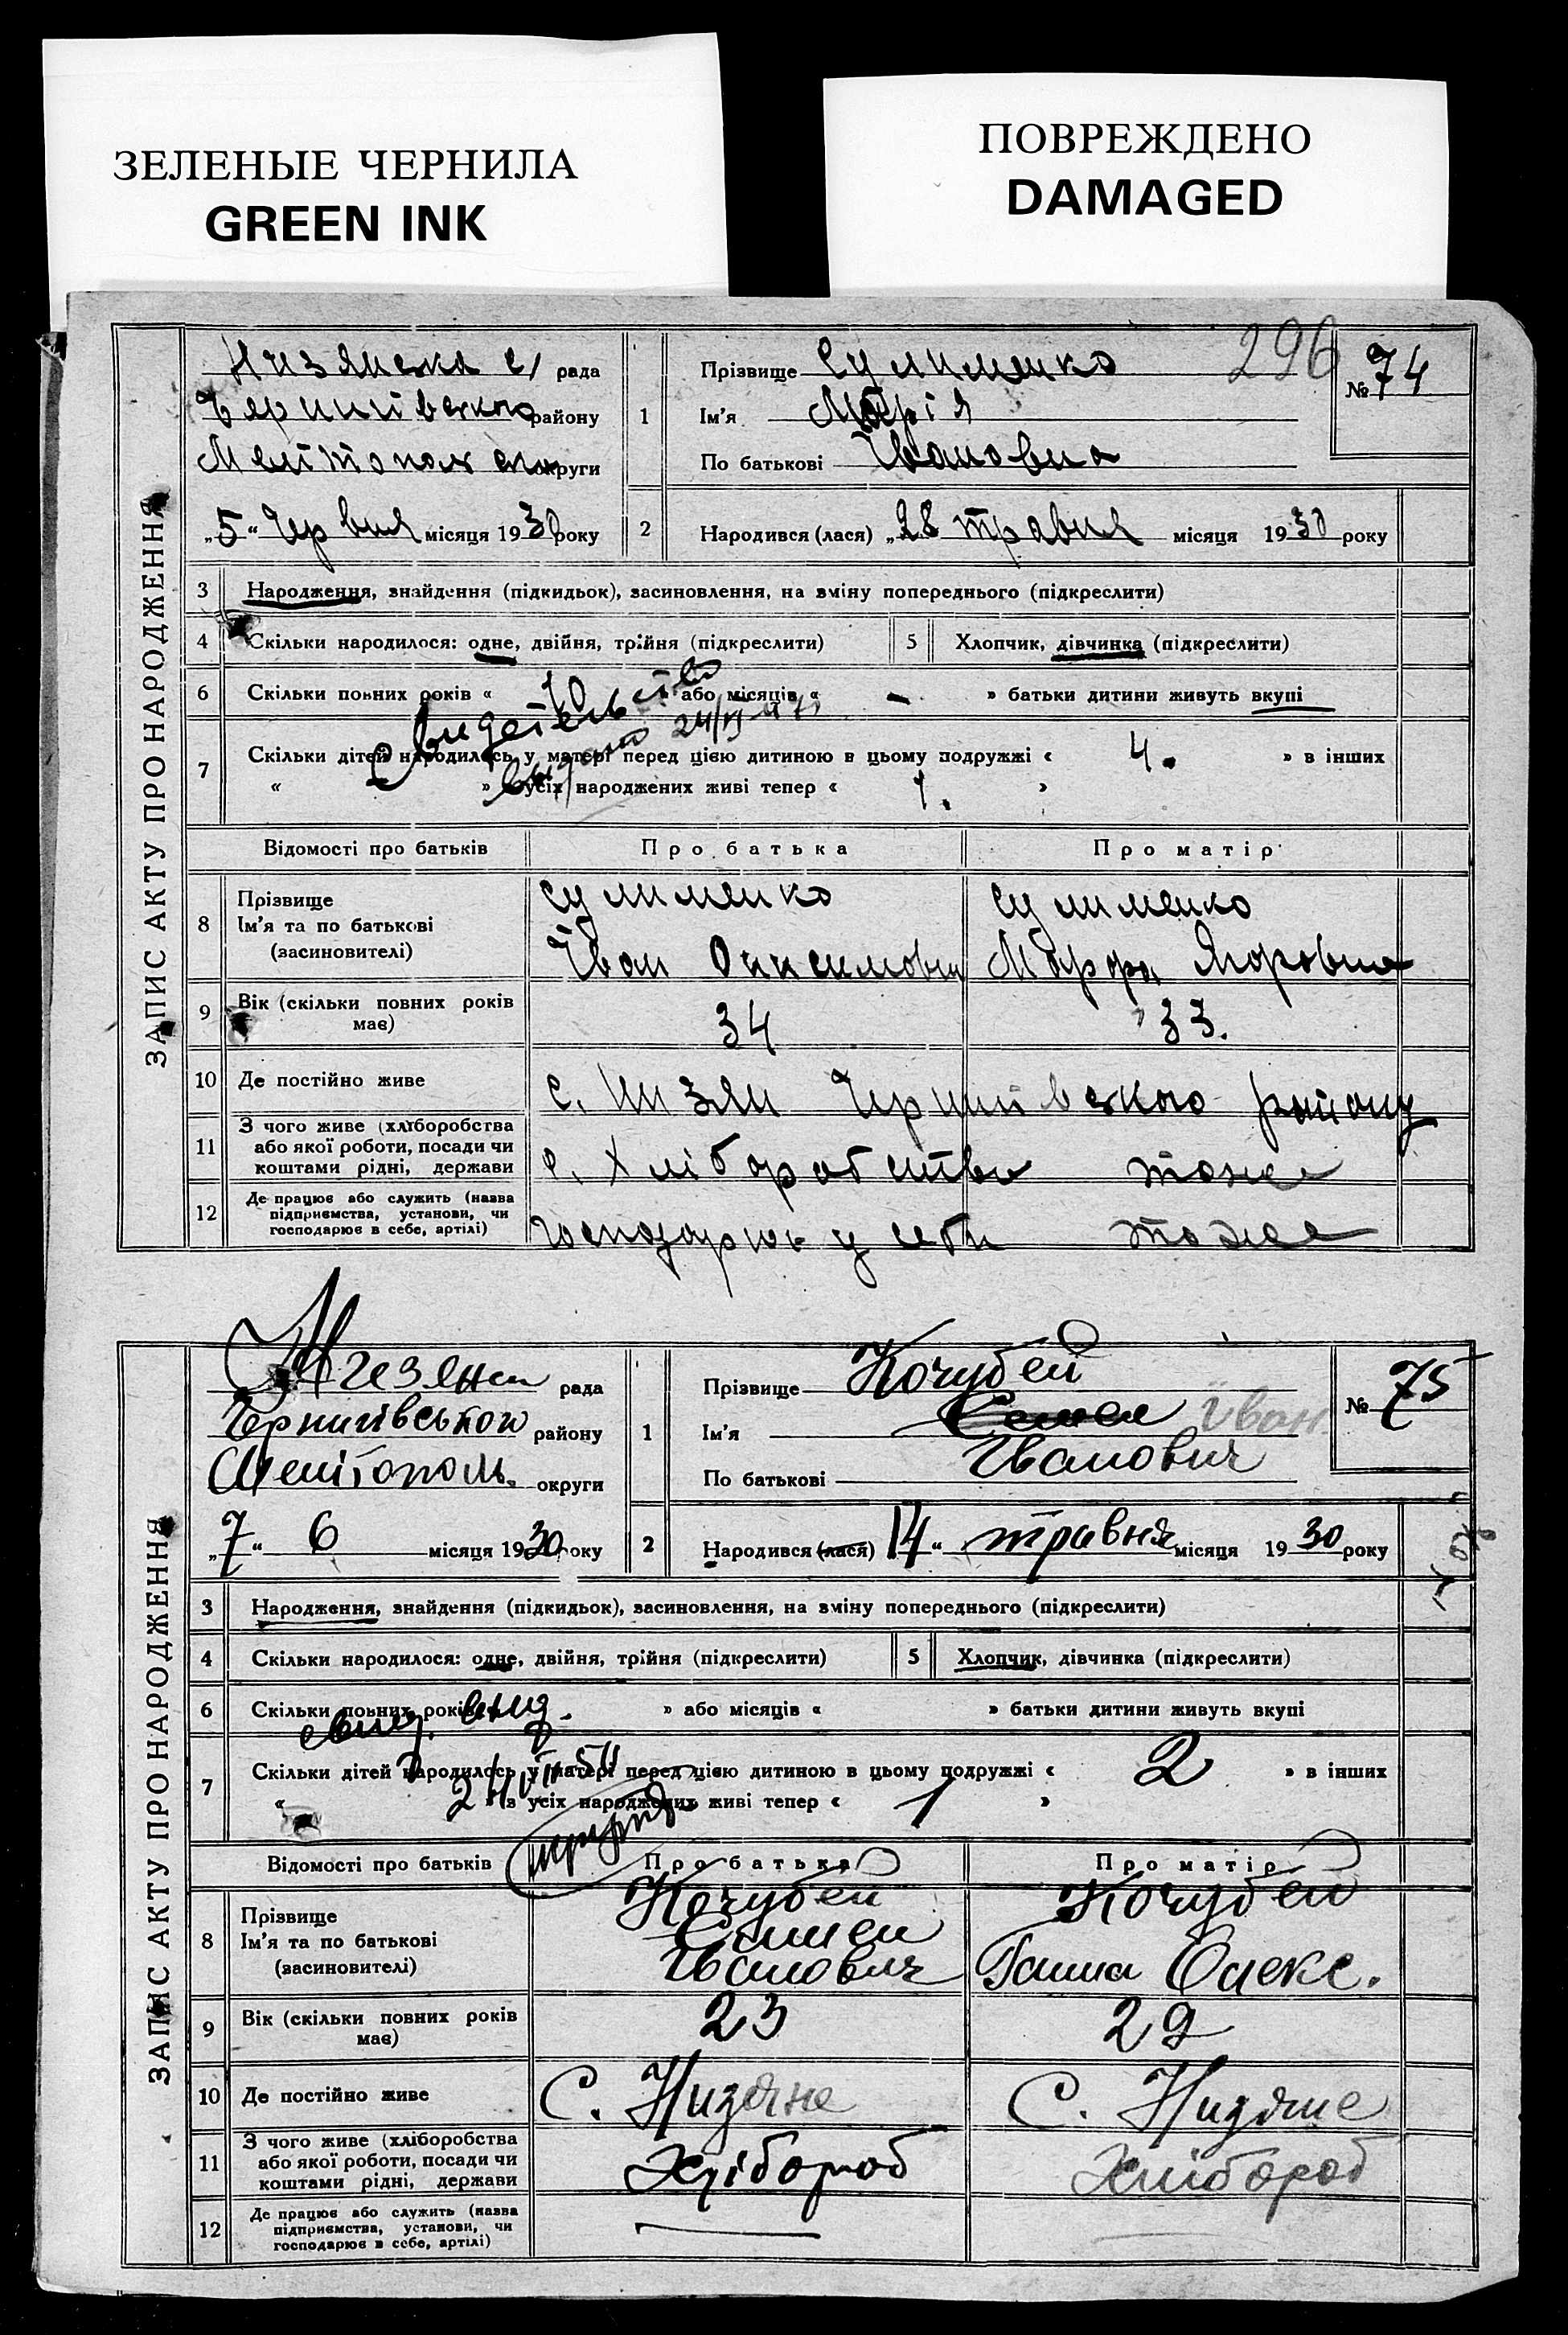 ЗЕЛЕНЫЕ ЧЕРНИЛА
GREEN INK
ПОВРЕЖДЕНО
DAMAGED
296
ЗАПИС АКТУ ПРО НАРОДЖЕННЯ
Низянська с/ рада
Чернигівського району
Мелітопольск округи
„5“ Червня місяця 1930 року
1 Прізвище Сулименко
Ім'я Марія
По батькові Івановна
№ 74
2 Народився (лася) „28 травня місяця 1930 року
3 Народження, знайдення (підкидьок), засиновлення, на зміну попереднього (підкреслити)
4 Скільки народилося: одне, двійня, трійня (підкреслити) 5 Хлопчик, дівчинка (підкреслити)
6 Скільки повних років « 10 » або місяців « - » батьки дитини живуть вкупі
Свидетельство
7 Скільки дітей народилось у матері перед цією дитиною в цьому подружжі « 4. » в інших
« » з усіх народжених живі тепер « 1. »
Відомості про батьків Про батька Про матір
8 Прізвище Ім'я та по батькові (засиновителі)
Сулименко Сулименко
Іван
9 Вік (скільки повних років має) 34 33.
10 Де постійно живе с. Низян Чернигівского району
11 З чого живе (хліборобства або якої роботи, посади чи коштами рідні, держави
с. Хліборобства тоже
12 Де працює або служить (назва підприємства, установи, чи господарює в себе, артілі)
господарює у себе тоже
ЗАПИС АКТУ ПРО НАРОДЖЕННЯ
Низянск рада
Чернигівського району
Мелітополь. округи
„7“ 6 місяця 1930 року
1 Прізвище Кочубей
Ім'я Семен Іван
По батькові Іванович
№ 75
2 Народився (лася) 14“ травня місяця 1930 року
3 Народження, знайдення (підкидьок), засиновлення, на зміну попереднього (підкреслити)
4 Скільки народилося: одне, двійня, трійня (підкреслити) 5 Хлопчик, дівчинка (підкреслити)
6 Скільки повних років » або місяців « » батьки дитини живуть вкупі
свид. выд.
7 Скільки дітей народилось у матері перед цією дитиною в цьому подружжі « 2 » в інших
« » з усіх народжених живі тепер « 1 »
Відомості про батьків Про батька Про матір
8 Прізвище Ім'я та по батькові (засиновителі)
Кочубей Кочубей
Семен
Іванович Ганна Олекс.
9 Вік (скільки повних років має) 23 22
10 Де постійно живе С. Низяне С. Низяне
11 З чого живе (хліборобства або якої роботи, посади чи коштами рідні, держави
Хлібороб Хлібороб
12 Де працює або служить (назва підприємства, установи, чи господарює в себе, артілі)